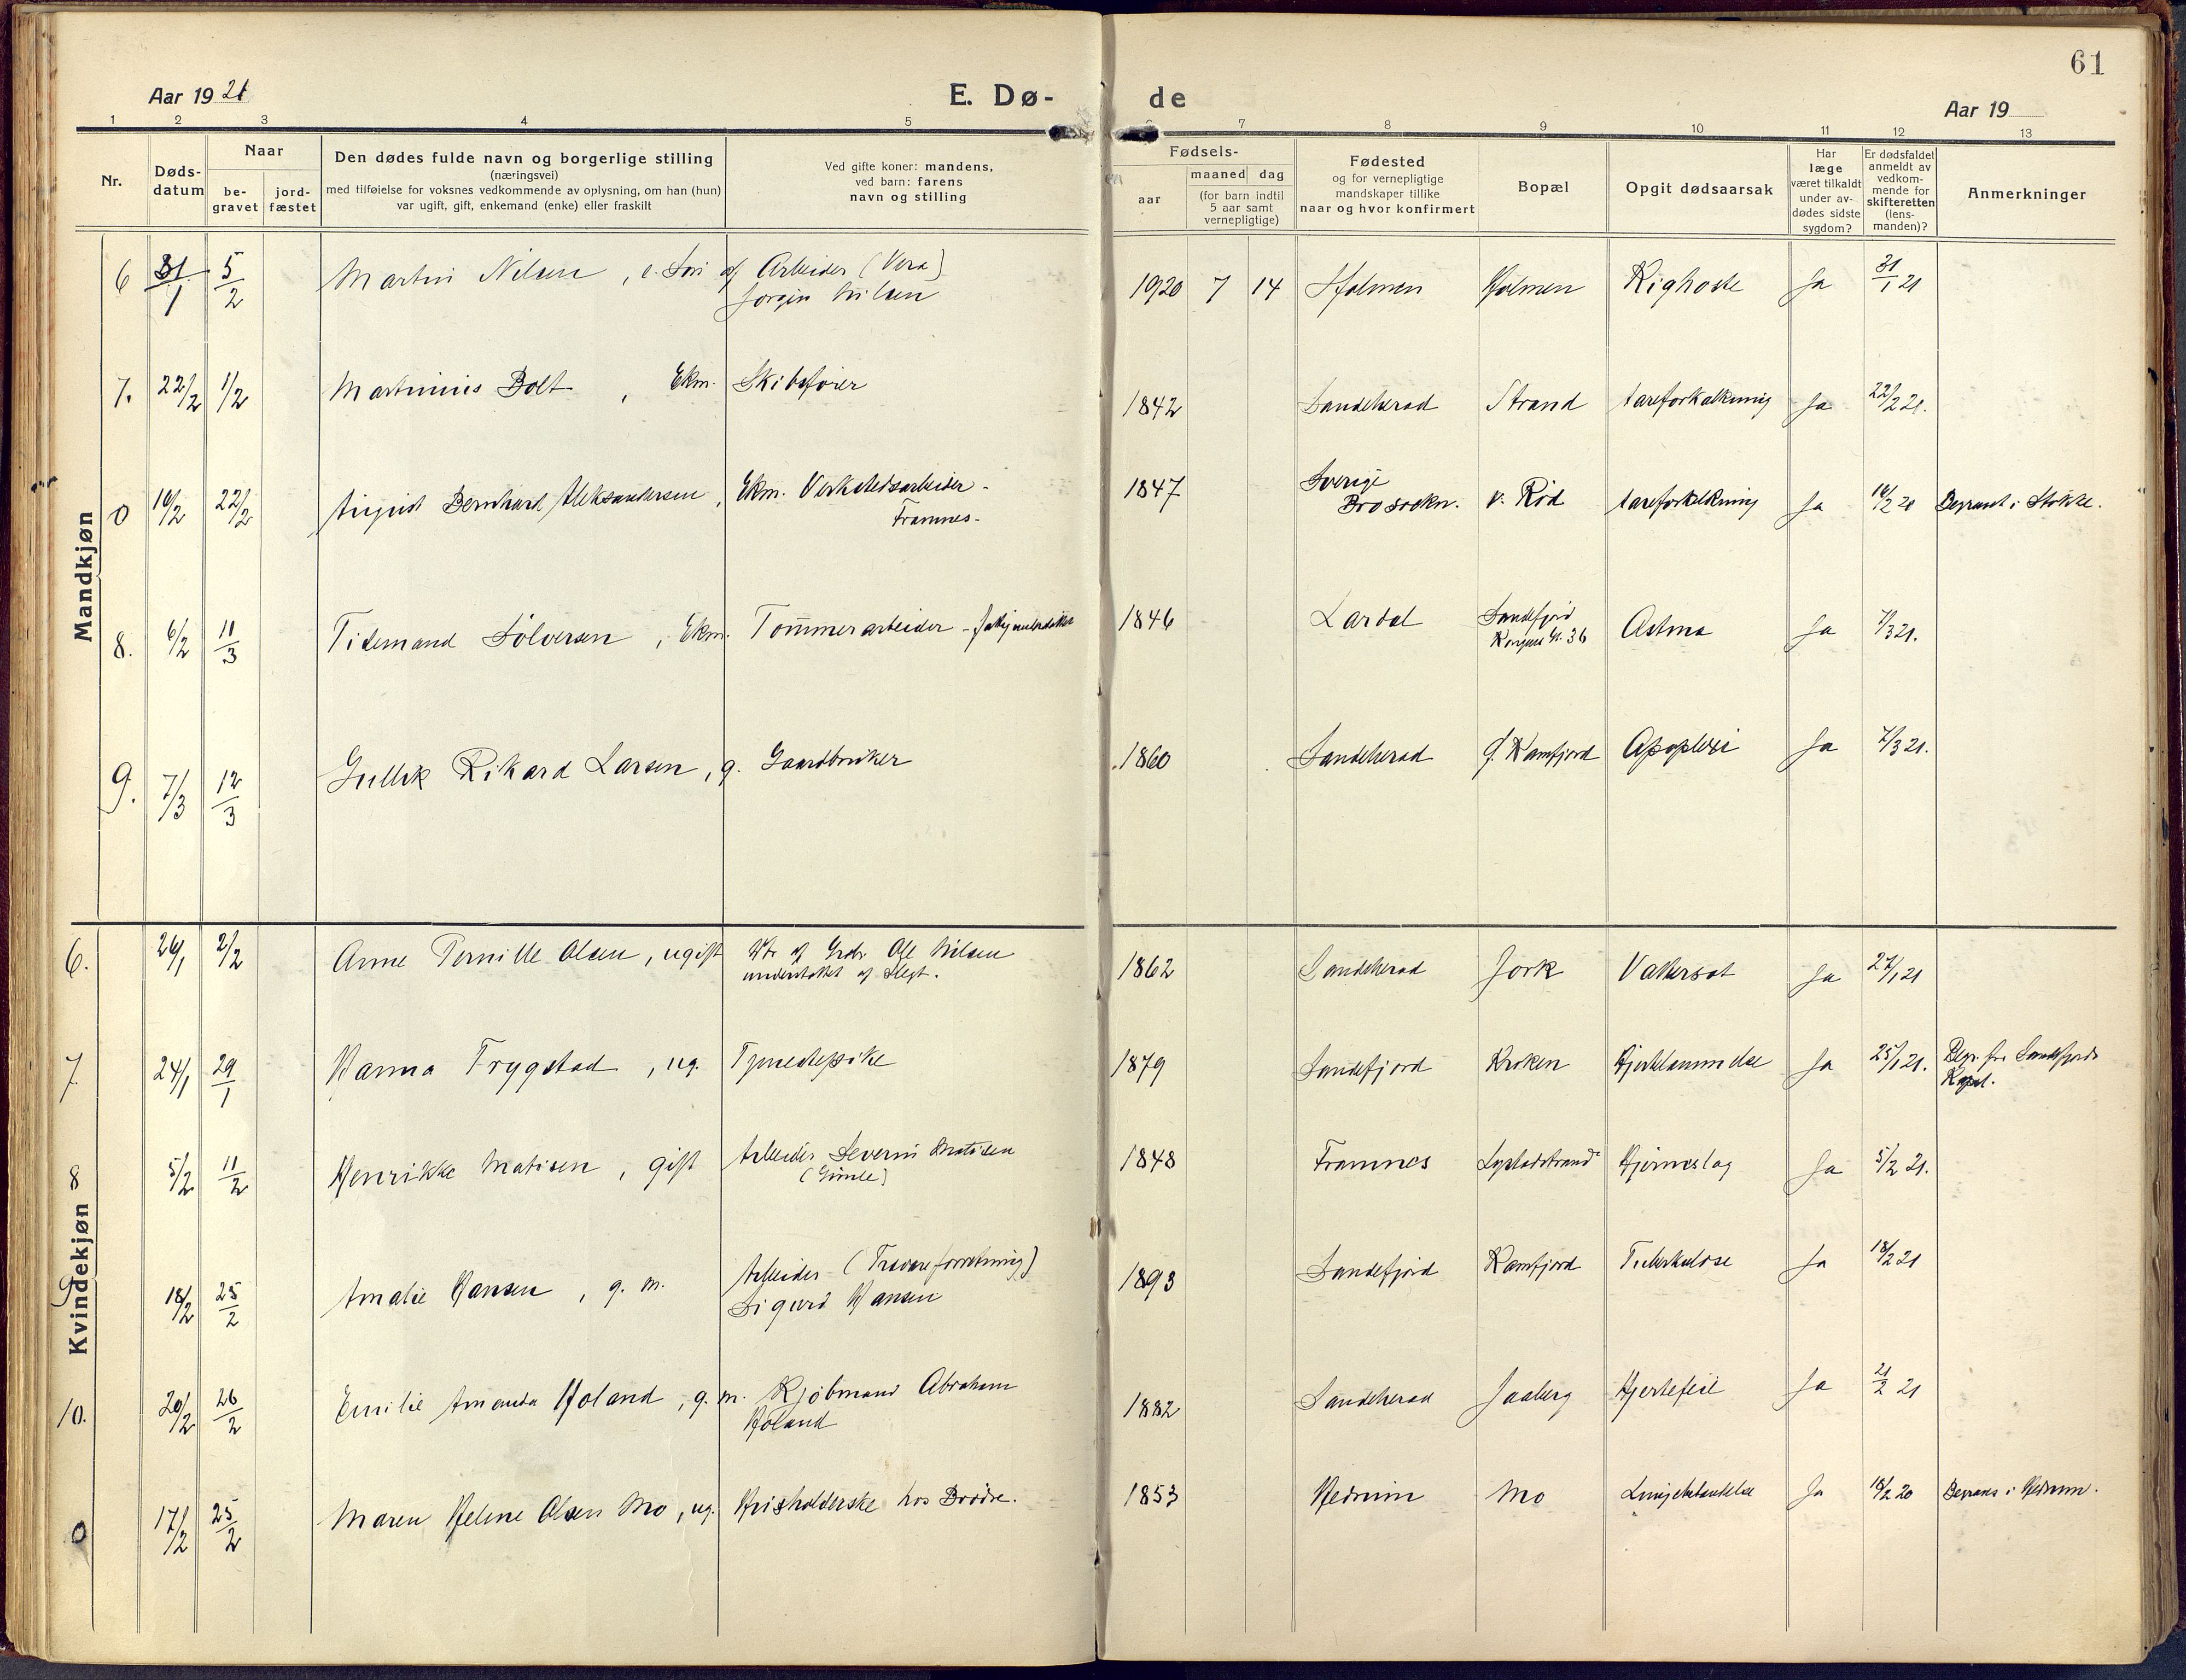 61
Aar 1921
E. Dø-
de
Aar 19
1 2 3 4 5 7 8 9 10 11 12 13
Nr.
Døds-
datum
Naar
be-
gravet
jord-
fæstet
Den dødes fulde navn og borgerlige stilling
(næringsvei)
med tilføielse for voksnes vedkommende av oplysning, om han (hun)
var ugift, gift, enkemand (enke) eller fraskilt
Ved gifte koner: mandens,
ved barn: farens
navn og stilling
Fødsels-
aar
maaned dag
(for barn indtil
5 aar samt
vernepligtige)
Fødested
og for vernepligtige
mandskaper tillike
naar og hvor konfirmert
Bopæl
Opgit dødsaarsak
Har
læge
været tilkaldt
under av-
dødes sidste
sygdom?
Er dødsfaldet
anmeldt av
vedkom-
mende for
skifteretten
(lens-
manden)?
Anmerkninger
Mandkjøn
6 31/1 5/2 Martin Nilsen, e. Søn af Arbeider (Vera) 1920 7 14 Holmen Holmen Kighoste Ja 31/1 21
Jørgen Nilsen
7. 22/2 1/2 Martinius Bolt, Ekm. Skibsfører 1842 Sandeherad Strand Aareforkalkning Ja 22/2 21.
0 16/2 22/2 August Bernhard Aleksandersen, Ekm. Verkstedsarbeider - 1847 Sverige v. Rød Aareforkalkning Ja 16/2 20 Begravet i Stokke.
Framnes-
8. 6/2 11/3 Tidemand Sølversen, Ekm. Tømmerarbeider - 1846 Lardal Sandefjord Astma Ja 7/3 21.
36
9. 7/3 12/3 Gullik Rikard Larsen, g. Gaardbruker 1860 Sandeherad Kamfjord Apoplexi Ja 7/3 21.
Kvindekjøn
6. 26/1 2/2 Anne Pernille Olsen, ugift Dtr af Grdr. Ole Nilsen 1862 Sandeherad Jork Vattersot Ja 27/1 21
understøttet af Slegt.
7 24/1 29/1 Hanna Trygstad, ug. Tjenestepike 1879 Sandefjord Kroken Hjertelammelse Ja 25/1 21. Begr. fra Sandefjords
Kapel.
8 5/2 11/2 Henrikke Matisen, gift Arbeider Severin Matisen 1848 Framnes Lystadstrand Hjerneslag Ja 5/2 21.
(Gimle)
9 18/2 25/2 Amalie Hansen, g. m. Arbeider (Trævareforretning) 1893 Sandefjord Kamfjord Tuberkulose Ja 18/2 21
Sigurd Hansen
10. 20/2 26/2 Emilie Amanda Holand, g. m. Kjøbmand Abraham 1882 Sandeherad Jaaberg Hjertefeil Ja 21/2 21
Holand
0 17/2 25/2 Maren Helene Olsen Mo, ug. Husholderske hos Brødre. 1853 Hedrum Mo Lungebetændelse Ja 18/2 20 Begraves i Hedrum.